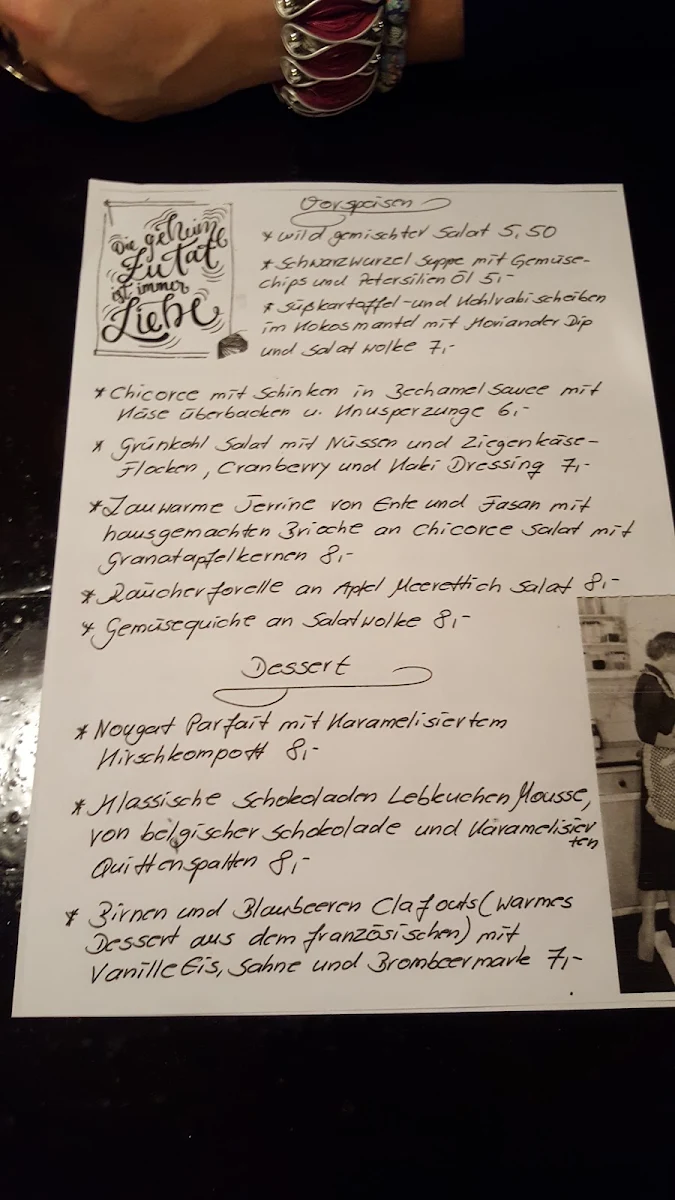 Die geheime
Zutat
ist immer
Liebe
Vorspeisen
* wild gemischter Salat 5,50
* Schwarzwurzel Suppe mit Gemüse-
chips und Petersilien Öl 5,-
* Süßkartoffel-und Kohlrabischeiben
im Kokosmantel mit Koriander Dip
und Salatwolke 7,-
* Chicoree mit Schinken in Bechamel Sauce mit
Käse überbacken u. Knusperzunge 6,-
* Grünkohl Salat mit Nüssen und Ziegenkäse-
Flocken, Cranberry und Kaki Dressing 7,-
* Lauwarme Terrine von Ente und Fasan mit
hausgemachten Brioche an Chicoree Salat mit
Granatapfelkernen 8,-
* Räucherforelle an Apfel Meerettich Salat 8,-
* Gemüsequiche an Salatwolke 8,-
Dessert
* Nougat Parfait mit Karamelisiertem
Kirschkompott 8,-
* Klassische Schokoladen Lebkuchen Mousse,
von belgischer Schokolade und Karamelisier
ten
Quittenspalten 8,-
* Birnen und Blaubeeren Clafouts (warmes
Dessert aus dem französischen) mit
Vanille Eis, Sahne und Brombeermark 7,-